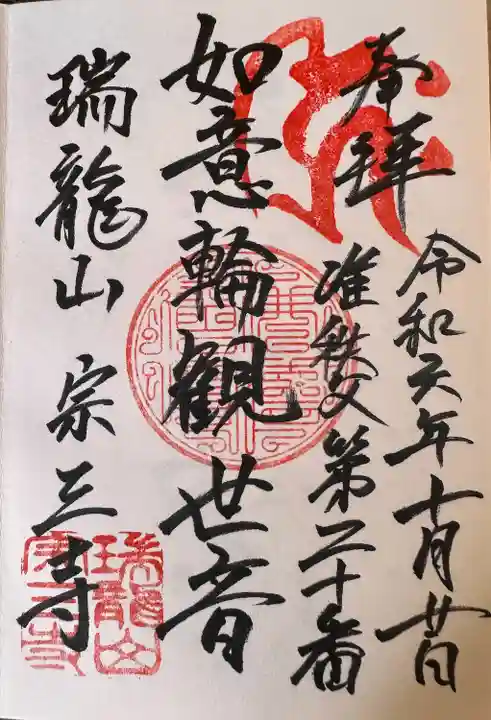 奉拝
令和六年十月廿日
准秩父第二十番
如意輪観世音
瑞龍山 宗三寺